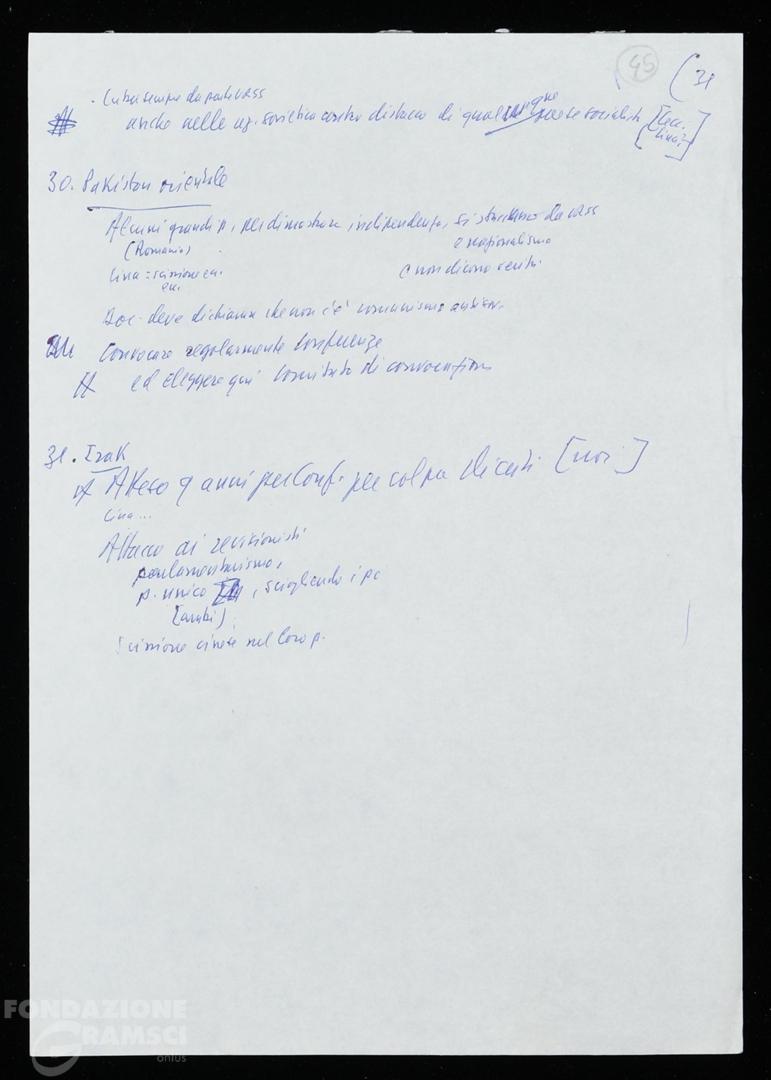 45
(31
. Cuba sempre da parte URSS
anche nelle sovietica contro distacco di qualunque paese socialista [
Cina?]
30. Pakistan orientale
Alcuni grandi p., per dimostrare indipendenza, si staccano da URSS
(Romania)
e nazionalismo
Cina = scissione
e non dicono
Doc. deve dichiarare che non c'è comunismo
Convocare regolarmente conferenze
ed eleggere qui comitato di convocazione
31. Irak
Atteso 9 anni per Conf. per colpa di certi [noi]
Cina...
Attacco ai revisionisti
parlamentarismo,
p. unico, sciogliendo i pc
[arabi]
Scissione cinese nel loro p.
FONDAZIONE
GRAMSCI
onlus